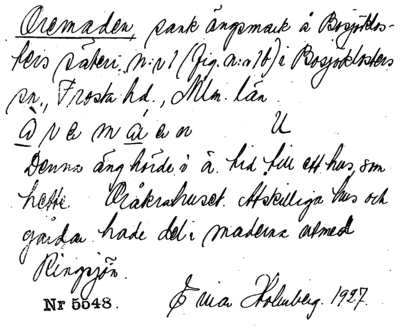 Oremaden, sank ängsmark å Bosjöklos-
ters säteri, n:r 1 (fig. n:o 16) i Bosjöklosters
sn., Frosta hd., Mlm. län.
U
Denna äng hörde i ä. tid till ett hus, som
hette Oråkrahuset. Åtskilliga hus och
gårdar hade del i maderna utmed
Ringsjön.
Nr 5548. Holmberg. 1927.